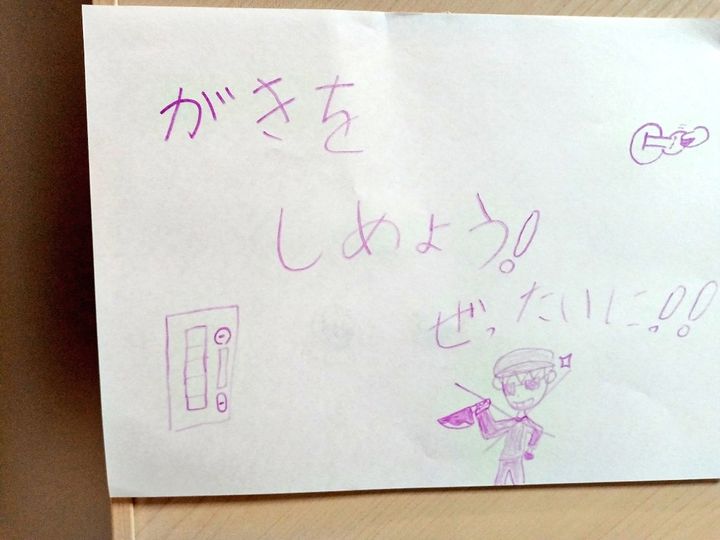 がきを
しめよう!
ぜったいに!!